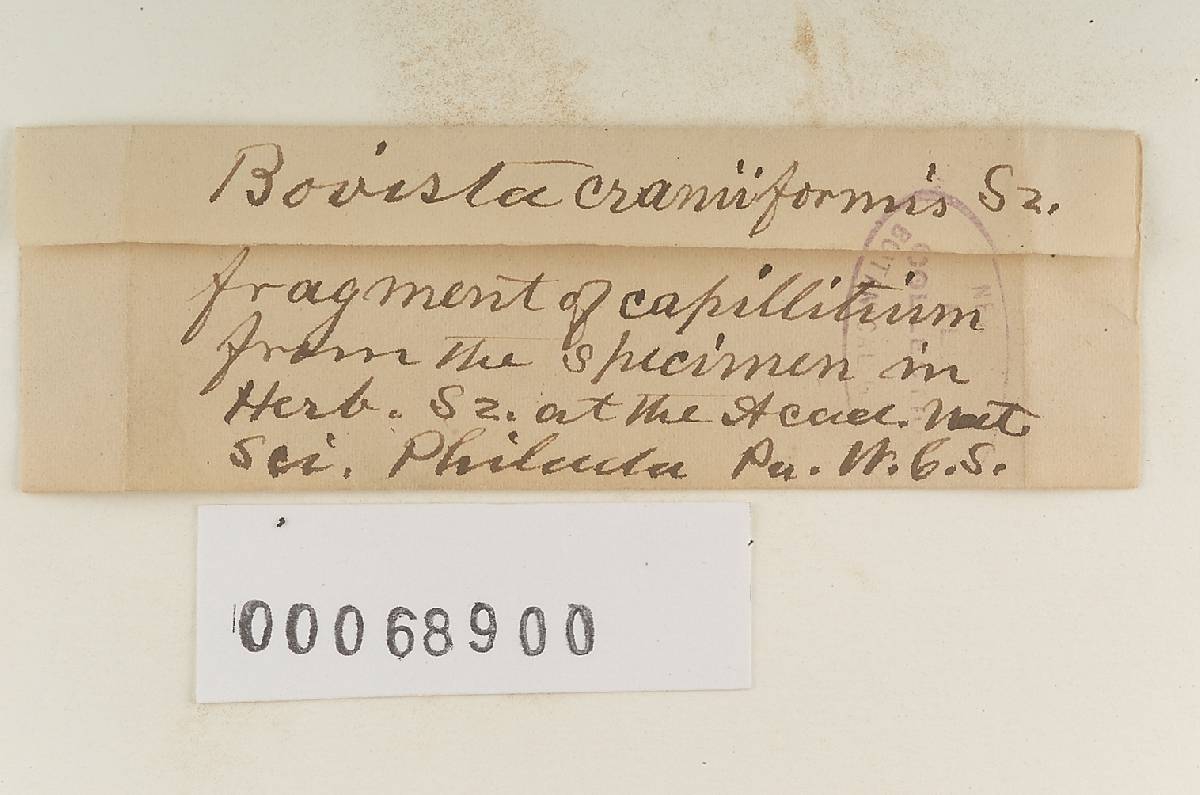 Bovista craniiformis Sz.
fragment of capillitium
from the specimen in
Herb. Sz. at the Acad. Nat
Sci. Philada Pa. W.C.S.
00068900